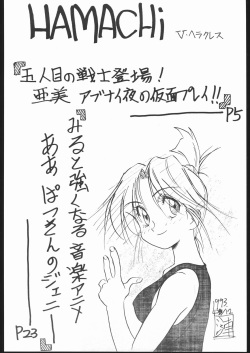 HAMACHi
V・ヘラクレス
『五人目の戦士登場!
亜美 アブナイ夜の仮面プレイ!!』
P5
『みると強くなる音楽アニメ
ああ ぱつきんのジェニー』
P23
1993